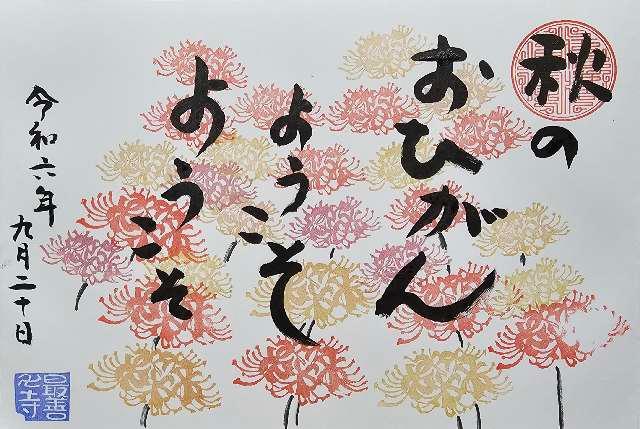 秋の
おひがん
ようこそ
ようこそ
令和六年
九月二十日
最善寺